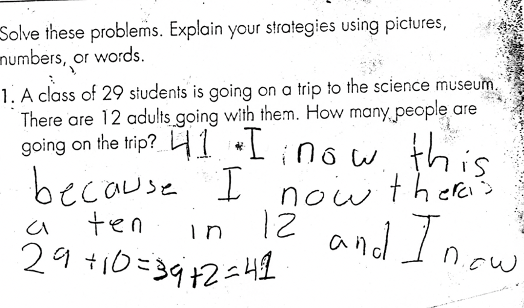 Solve these problems. Explain your strategies using pictures,
numbers, or words.
1. A class of 29 students is going on a trip to the science museum.
There are 12 adults going with them. How many people are
going on the trip? 41 • I inow this
because I now thereis
a ten in 12 and I now
29 +10=39+2=41